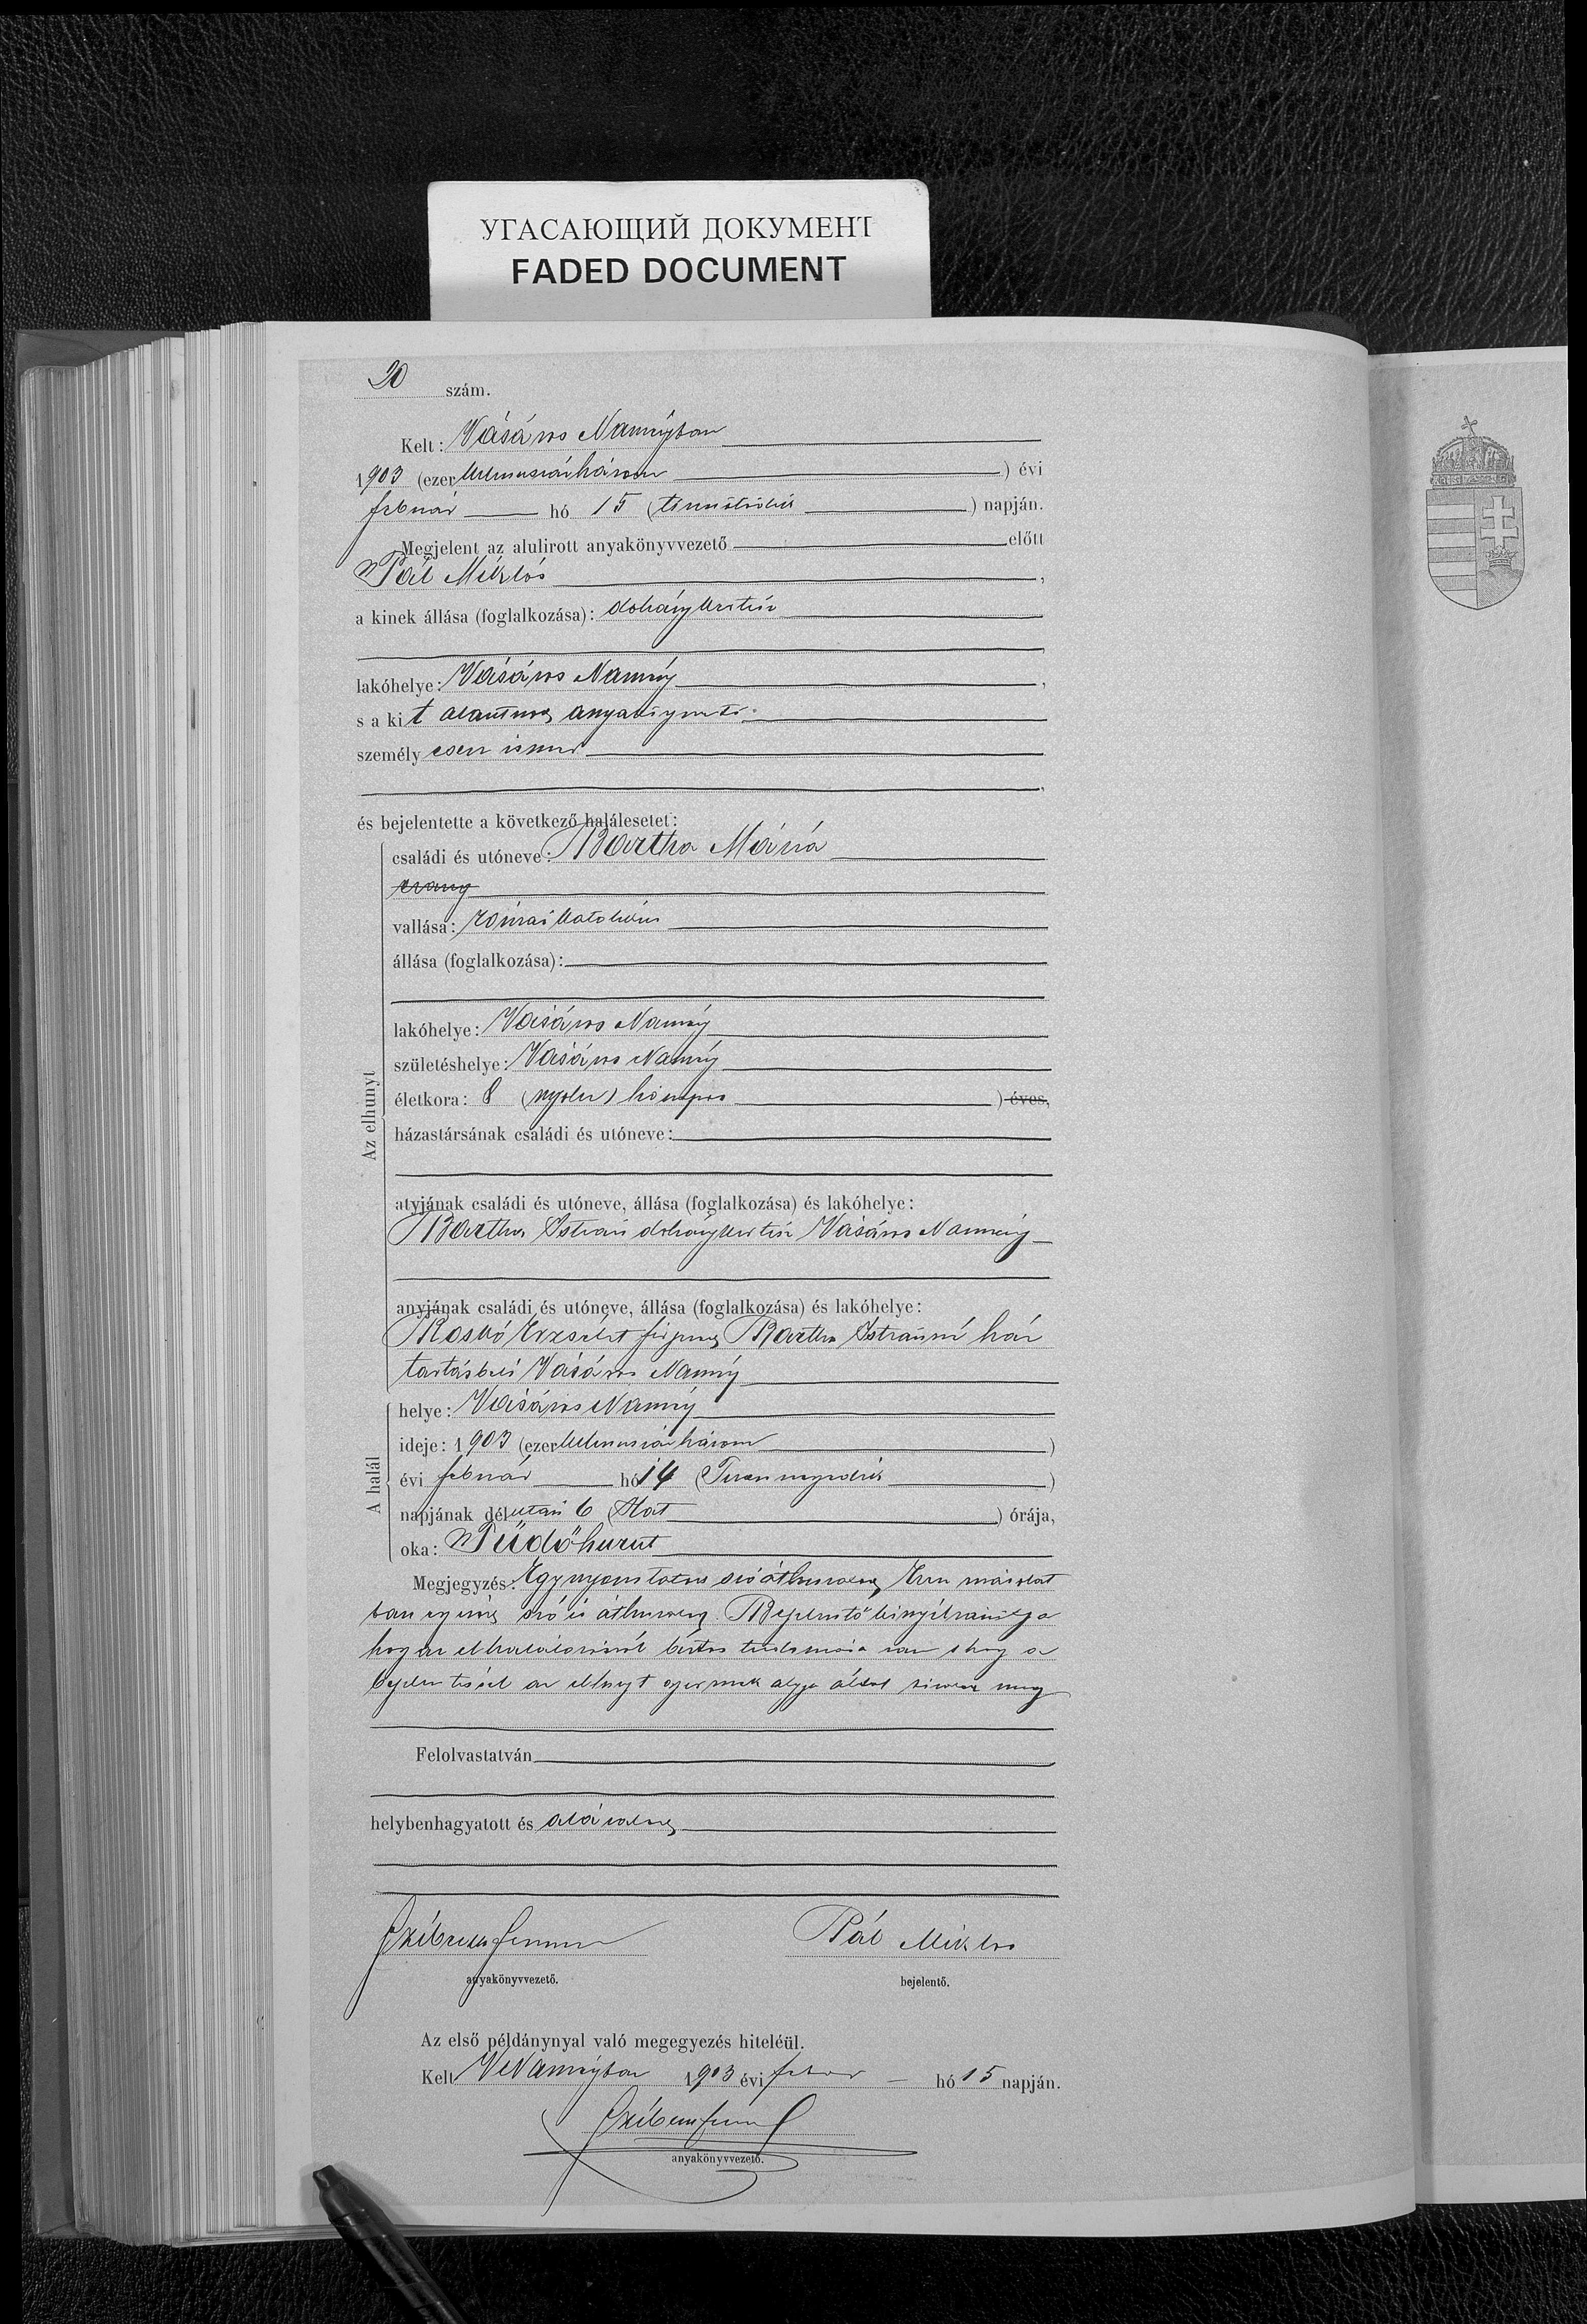 УГАСАЮЩИЙ ДОКУМЕНТ
FADED DOCUMENT
20 szám.
Kelt: Vásáros Naményban
1903 (ezer kilenczszázhárom ) évi
február hó 15 (tizenötödik ) napján.
Megjelent az alulirott anyakönyvvezető előtt
Pál Miklós ,
a kinek állása (foglalkozása): dohánykertész
,
lakóhelye: Vásáros Namény ,
s a kit alantnok anyakönyvvezető
személyesen ismer
,
és bejelentette a következő halálesetet:
Az elhunyt
családi és utóneve: Bartha Mária
vallása: római katholikus
állása (foglalkozása):
lakóhelye: Vásáros Namény
születéshelye: Vásáros Namény
életkora: 8 (nyolcz) hónapos ) éves,
házastársának családi és utóneve:
atyjának családi és utóneve, állása (foglalkozása) és lakóhelye:
Bartha István dohánykertész Vásáros Namény
anyjának családi és utóneve, állása (foglalkozása) és lakóhelye:
Roskó Erzsébet férjezett Bartha Istvánné ház
tartásbeli Vásáros Namény
A halál
helye: Vásáros Namény
ideje: 1903 (ezer kilenczszázhárom )
évi február hó 14 (Tizennegyedik )
napjának délután 6 (Hat ) órája,
oka: Tüdőhurut
Megjegyzés: Egy nyomtatott szó áthúzva, Ezen másolat
ban egy irott szó is áthúzva. Bejelentő kinyilvánitja
hogy az elhalálozásról biztos tudomása van s hogy a
bejelentéssel az elhunyt gyermek atyja által bizatott meg
Felolvastatván
helybenhagyatott és aláiratott
Pál Miklos
anyakönyvvezető. bejelentő.
Az első példánynyal való megegyezés hiteléül.
Kelt VNaményban 1903 évi febr hó 15 napján.
anyakönyvvezető.